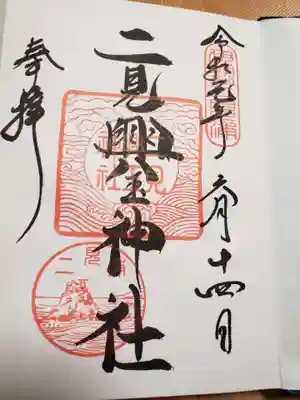 令和元年 六月十四日
二見興玉神社
奉拝